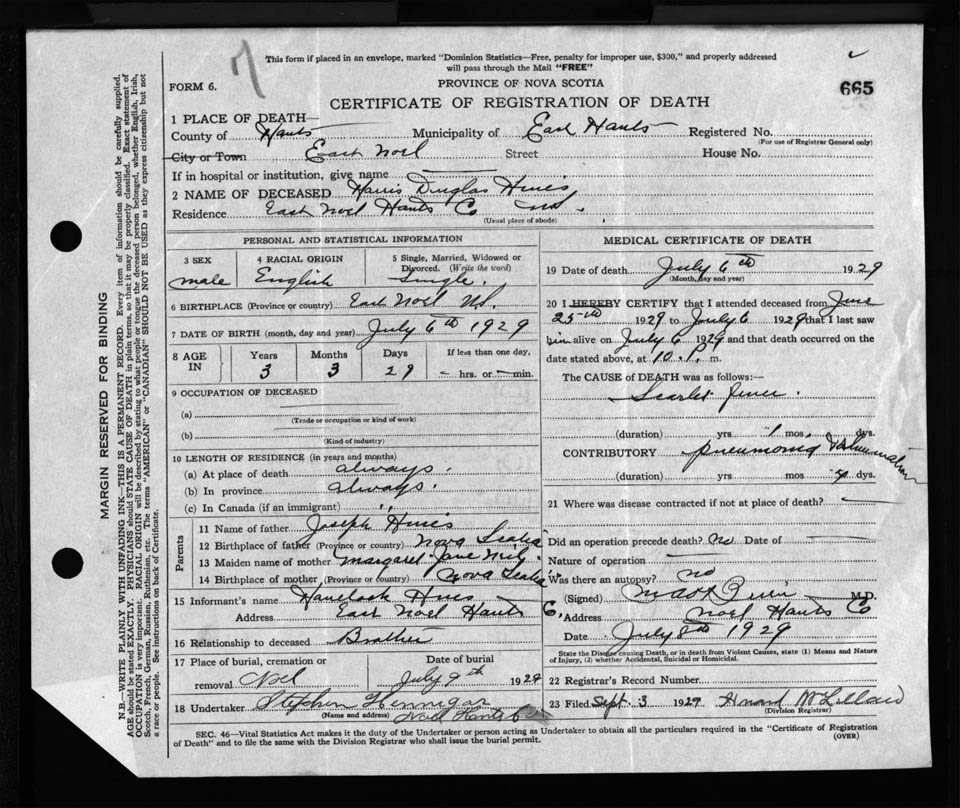 7
This form if placed in an envelope, marked "Dominion Statistics—Free, penalty for improper use, $300," and properly addressed
will pass through the Mail "FREE"
665
FORM 6.
PROVINCE OF NOVA SCOTIA
CERTIFICATE OF REGISTRATION OF DEATH
1 PLACE OF DEATH—
County of Hants Municipality of East Hants Registered No.
(For use of Registrar General only)
City or Town East Noel Street House No.
If in hospital or institution, give name —
2 NAME OF DECEASED Harris Douglas Hines
Residence East Noel Hants Co NS.
(Usual place of abode)
PERSONAL AND STATISTICAL INFORMATION
3 SEX 4 RACIAL ORIGIN 5 Single, Married, Widowed or
Divorced. (Write the word)
male English Single.
6 BIRTHPLACE (Province or country) East Noel NS.
7 DATE OF BIRTH (month, day and year) July 6th 1929
8 AGE IN Years Months Days If less than one day,
3 3 29 — hrs. or — min.
9 OCCUPATION OF DECEASED
(a)
(Trade or occupation or kind of work)
(b)
(Kind of industry)
10 LENGTH OF RESIDENCE (in years and months)
(a) At place of death always.
(b) In province always.
(c) In Canada (if an immigrant) ,,
Parents
11 Name of father Joseph Hines
12 Birthplace of father (Province or country) Nova Scotia
13 Maiden name of mother Margaret Jane
14 Birthplace of mother (Province or country) Nova Scotia
15 Informant's name Havelock Hines
Address East Noel Hants Co,
16 Relationship to deceased Brother
17 Place of burial, cremation or Date of burial
removal Noel July 9th 1929
18 Undertaker Stephen Hennigar
(Name and address) Noel Hants Co
MEDICAL CERTIFICATE OF DEATH
19 Date of death July 6th 1929
(Month, day and year)
20 I HEREBY CERTIFY that I attended deceased from June
25th 1929 to July 6 1929 that I last saw
him alive on July 6 1929 and that death occurred on the
date stated above, at 10.P. m.
The CAUSE of DEATH was as follows:—
Scarlet fever.
(duration) yrs 1 mos. dys.
CONTRIBUTORY pneumonia
(duration) yrs mos. dys.
21 Where was disease contracted if not at place of death? —
Did an operation precede death? no Date of —
Nature of operation —
Was there an autopsy? no
(Signed) M.D.
Address Noel Hants Co
Date July 8th 1929
State the Disease causing Death, or in death from Violent Causes, state (1) Means and Nature
of Injury, (2) whether Accidental, Suicidal or Homicidal.
22 Registrar's Record Number
23 Filed Sept 3 1929 McLellan
(Division Registrar)
SEC. 46—Vital Statistics Act makes it the duty of the Undertaker or person acting as Undertaker to obtain all the particulars required in the "Certificate of Registration
of Death" and to file the same with the Division Registrar who shall issue the burial permit. (OVER)
MARGIN RESERVED FOR BINDING
N.B.—WRITE PLAINLY WITH UNFADING INK—THIS IS A PERMANENT RECORD. Every item of information should be carefully supplied.
AGE should be stated EXACTLY. PHYSICIANS should STATE CAUSE OF DEATH in plain terms, so that it may be properly classified. Exact statement of
OCCUPATION is very important. RACIAL ORIGIN will be described by stating to what people or tongue the deceased person belonged, whether English, Irish,
Scotch, French, German, Russian, Ruthenian, etc. The terms "AMERICAN" or "CANADIAN" SHOULD NOT BE USED as they express citizenship but not
a race or people. See instructions on back of Certificate.